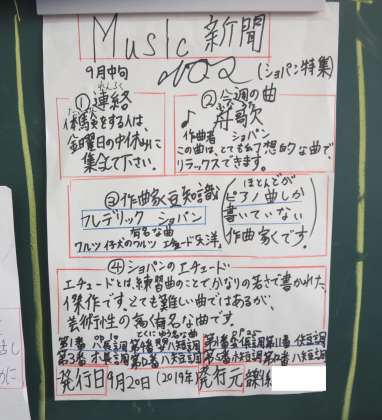 Music 新聞
9月中旬 No2 (ショパン特集)
①連絡
体験をする人は、
金曜日の中休みに
集合て下さい。
②今週の曲
♪ 舟歌
作曲者 ショパン
この曲は、とても幻想的な曲で、
リラックスできます。
③作曲家豆知識
フレデリック ショパン
有名な曲
ワルツ 仔犬のワルツ エチュード 大洋
(ほとんどが
ピアノ曲しか
書いていない
作曲家くです。)
④ショパンのエチュード
エチュードとは、練習曲のことでかなりの若さで書かれた、
傑作です。とても難しい曲ではあるが、
芸術性の高く有名な曲です。
とくに有名な曲
第1番 ハ長調 第4番 嬰ハ短調
第3番 ホ長調 第12番 ハ短調
第1番 変イ長調 第11番 イ短調
第5番 ホ短調 第12番 ハ短調
発行日 9月20日 (2019年) 発行元